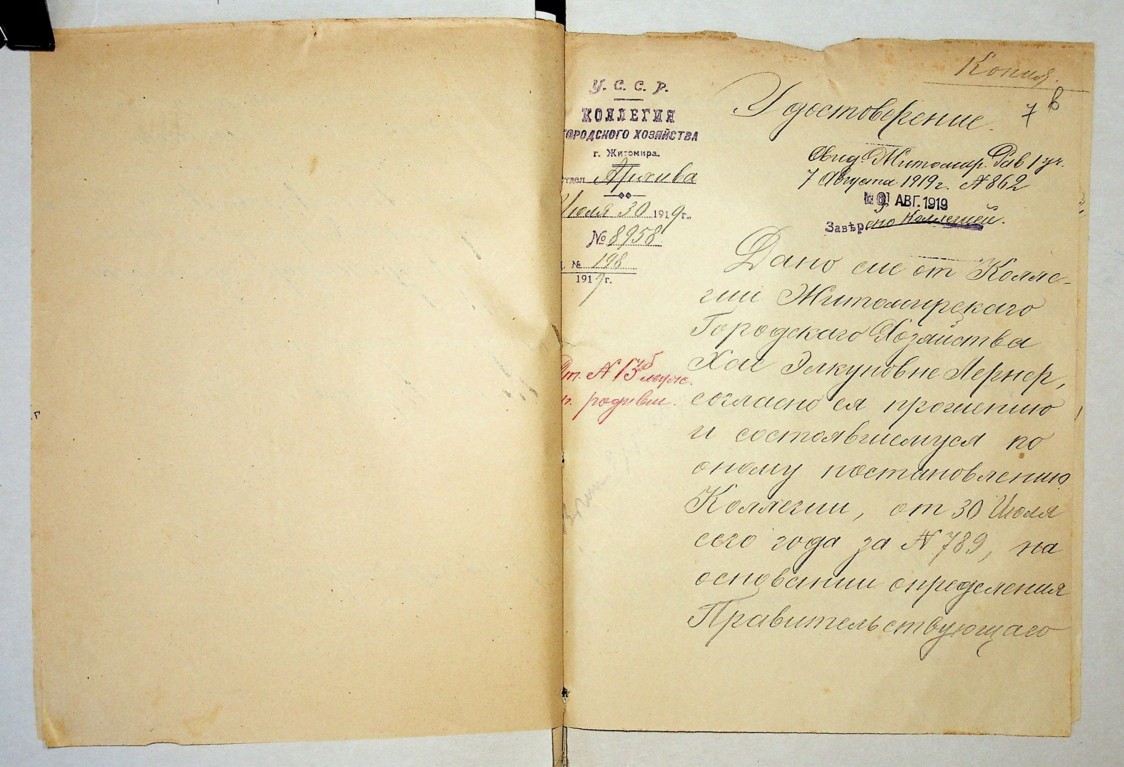 Копия.
7
У. С. С. Р.
КОЛЛЕГИЯ
ГОРОДСКОГО ХОЗЯЙСТВА
г. Житомира.
Архива
Июля 30 1919 г.
№ 8958
№ 198
1919 г.
Удостоверение.
Свид. Житомир. Рав 1 уч.
7 Августа 1919 г. № 862
АВГ. 1919
Завѣр
Коллегией.
№ 13
родивш.
Дано сие от Колле-
гии Житомирскаго
Городскаго Хозяйства
Хае Элкуновне Лернер,
согласно ея прошению
и состоявшемуся по
оному постановлению
Коллегии, от 30 Июля
сего года за № 789, на
основании определения
Правительствующаго